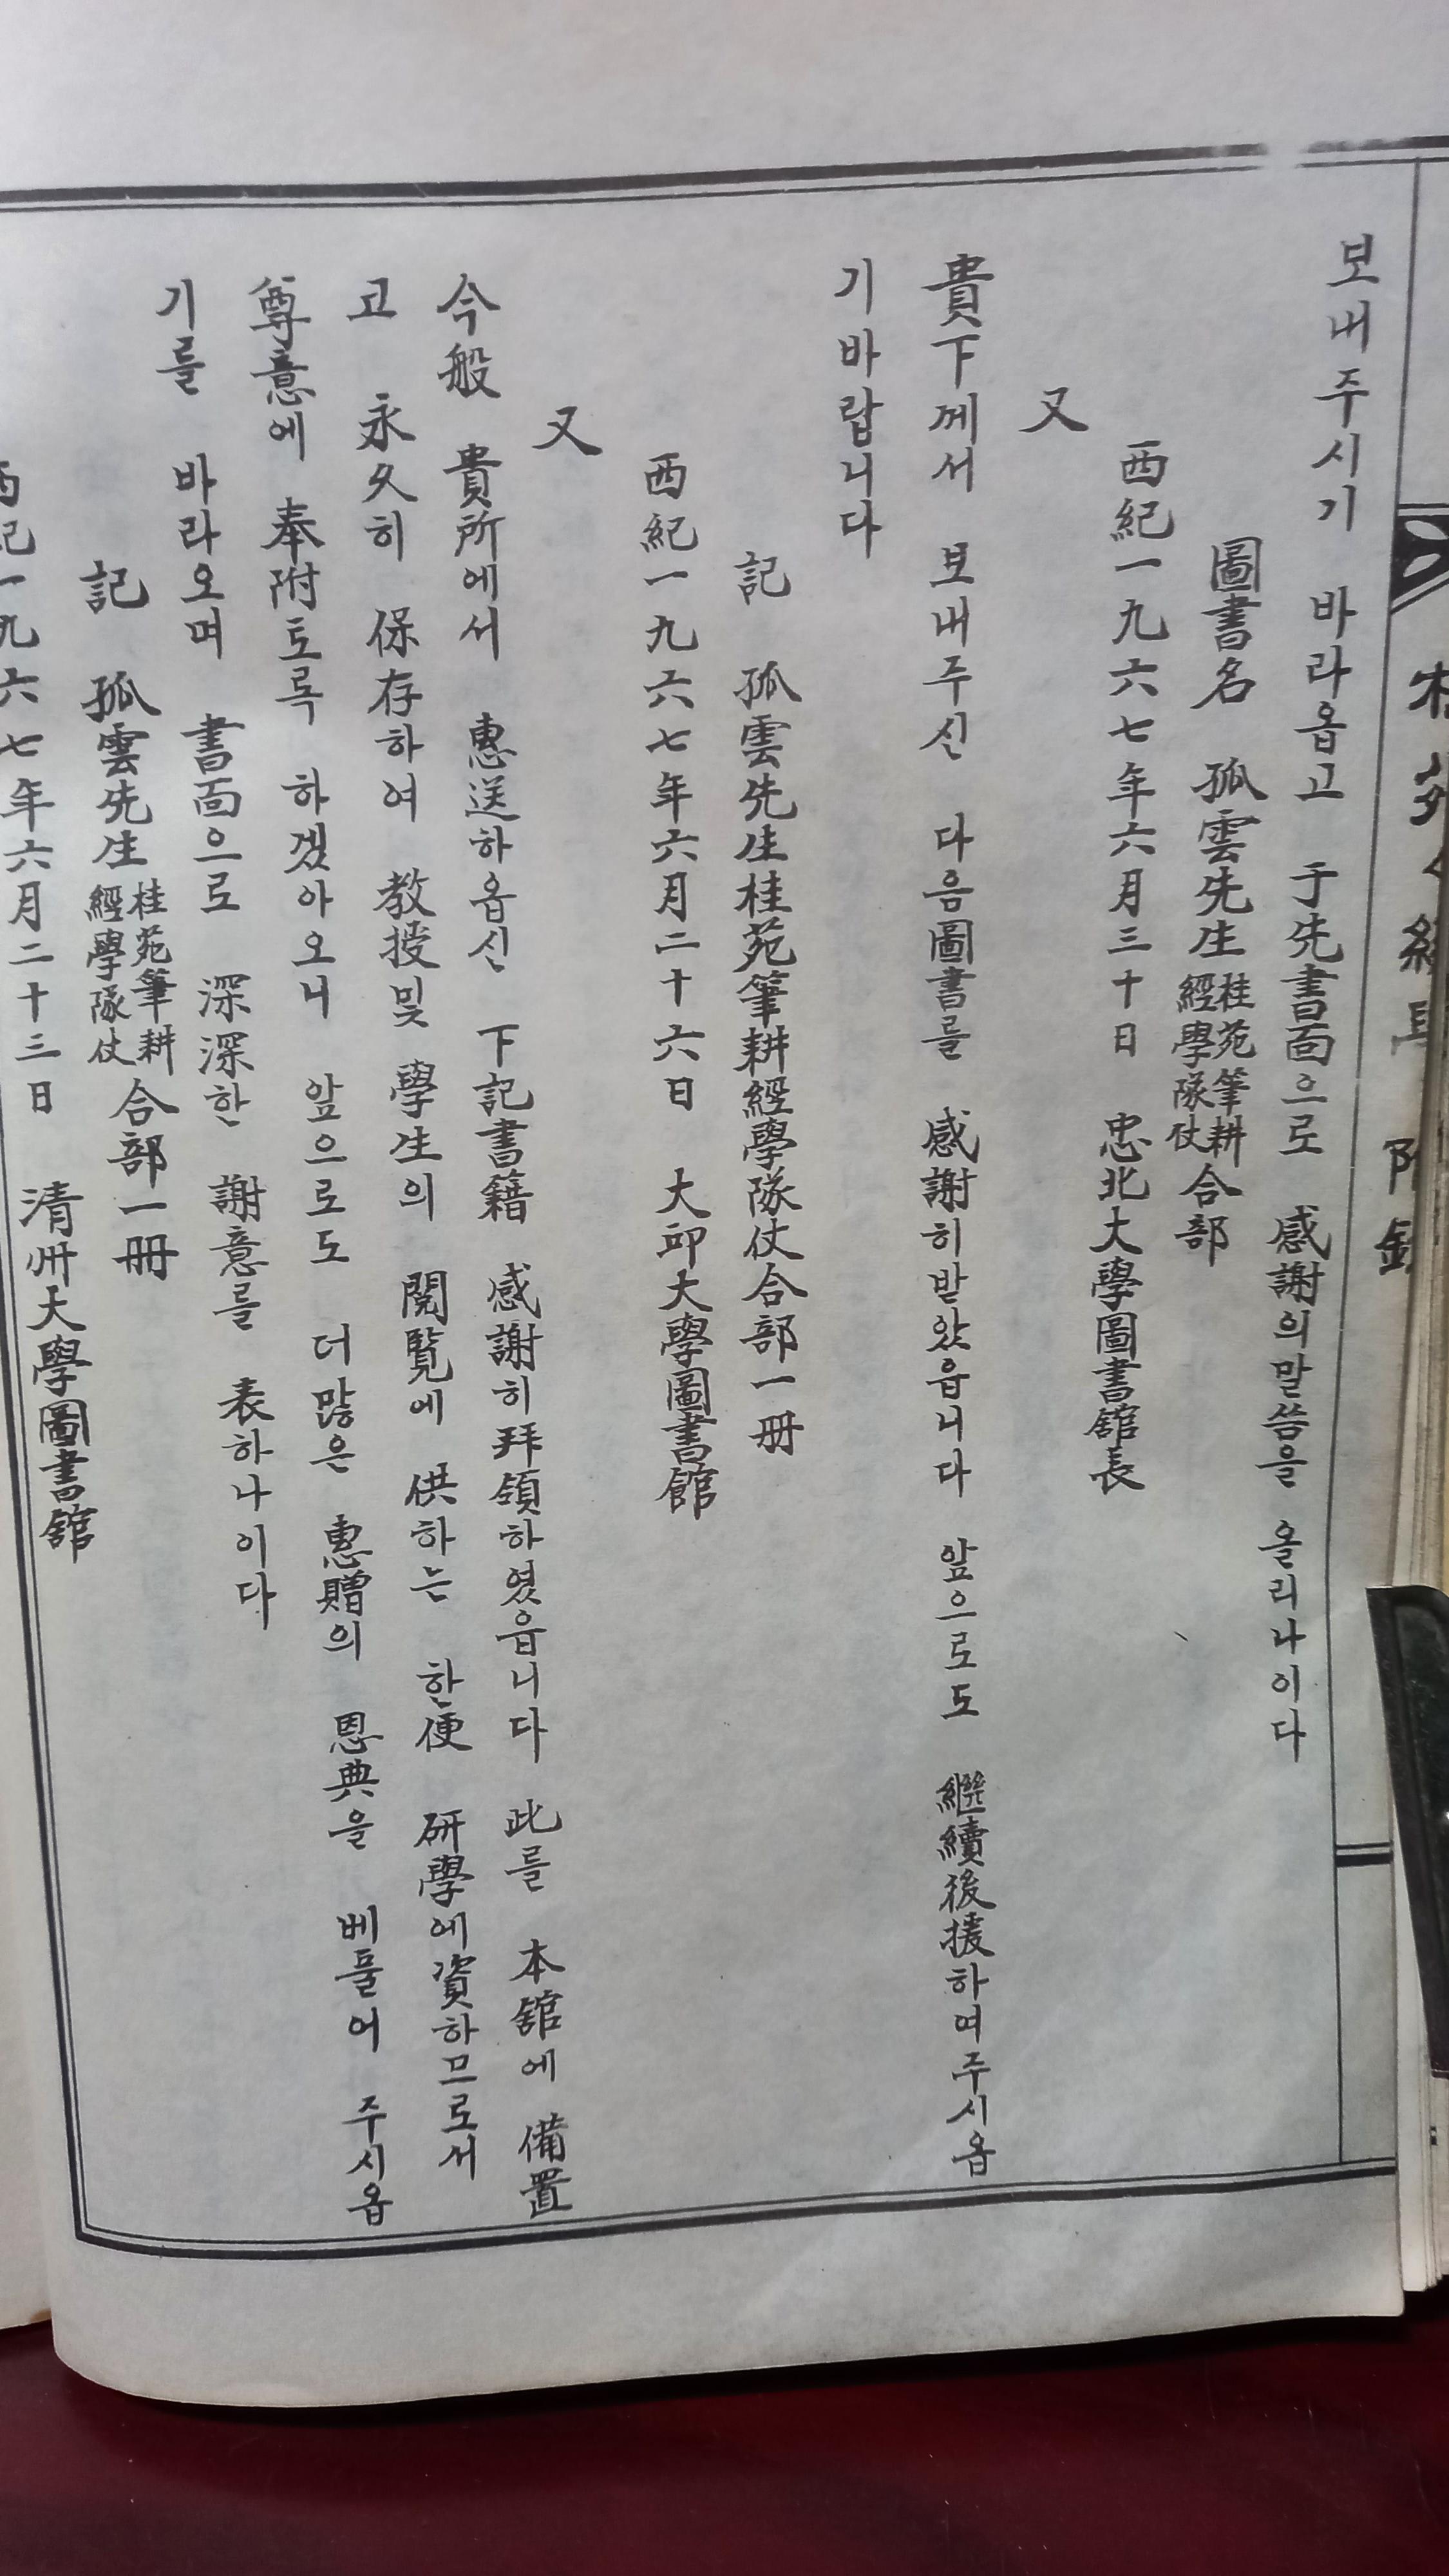 보내주시기 바라옵고 于先書面으로 感謝의말씀을 올리나이다
圖書名 孤雲先生 桂苑筆耕 經學隊仗 合部
西紀一九六七年六月三十日 忠北大學圖書舘長
又
貴下께서 보내주신 다음圖書를 感謝히받았읍니다 앞으로도 繼續後援하여주시옵
기바랍니다
記 孤雲先生桂苑筆耕經學隊仗合部一冊
西紀一九六七年六月二十六日 大邱大學圖書館
又
今般 貴所에서 惠送하옵신 下記書籍 感謝히拜領하였읍니다 此를 本舘에 備置
고 永久히 保存하여 教授및 學生의 閱覽에 供하는 한便 硏學에資하므로서
尊意에 奉附토록 하겠아오니 앞으로도 더많은 惠贈의 恩典을 베풀어 주시옵
기를 바라오며 書面으로 深深한 謝意를 表하나이다
記 孤雲先生 桂苑筆耕 經學隊仗 合部一冊
西紀一九六七年六月二十三日 清州大學圖書舘